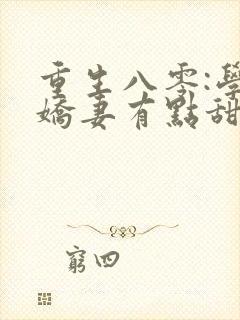 重生八零:學
嬌妻有點甜
窮四